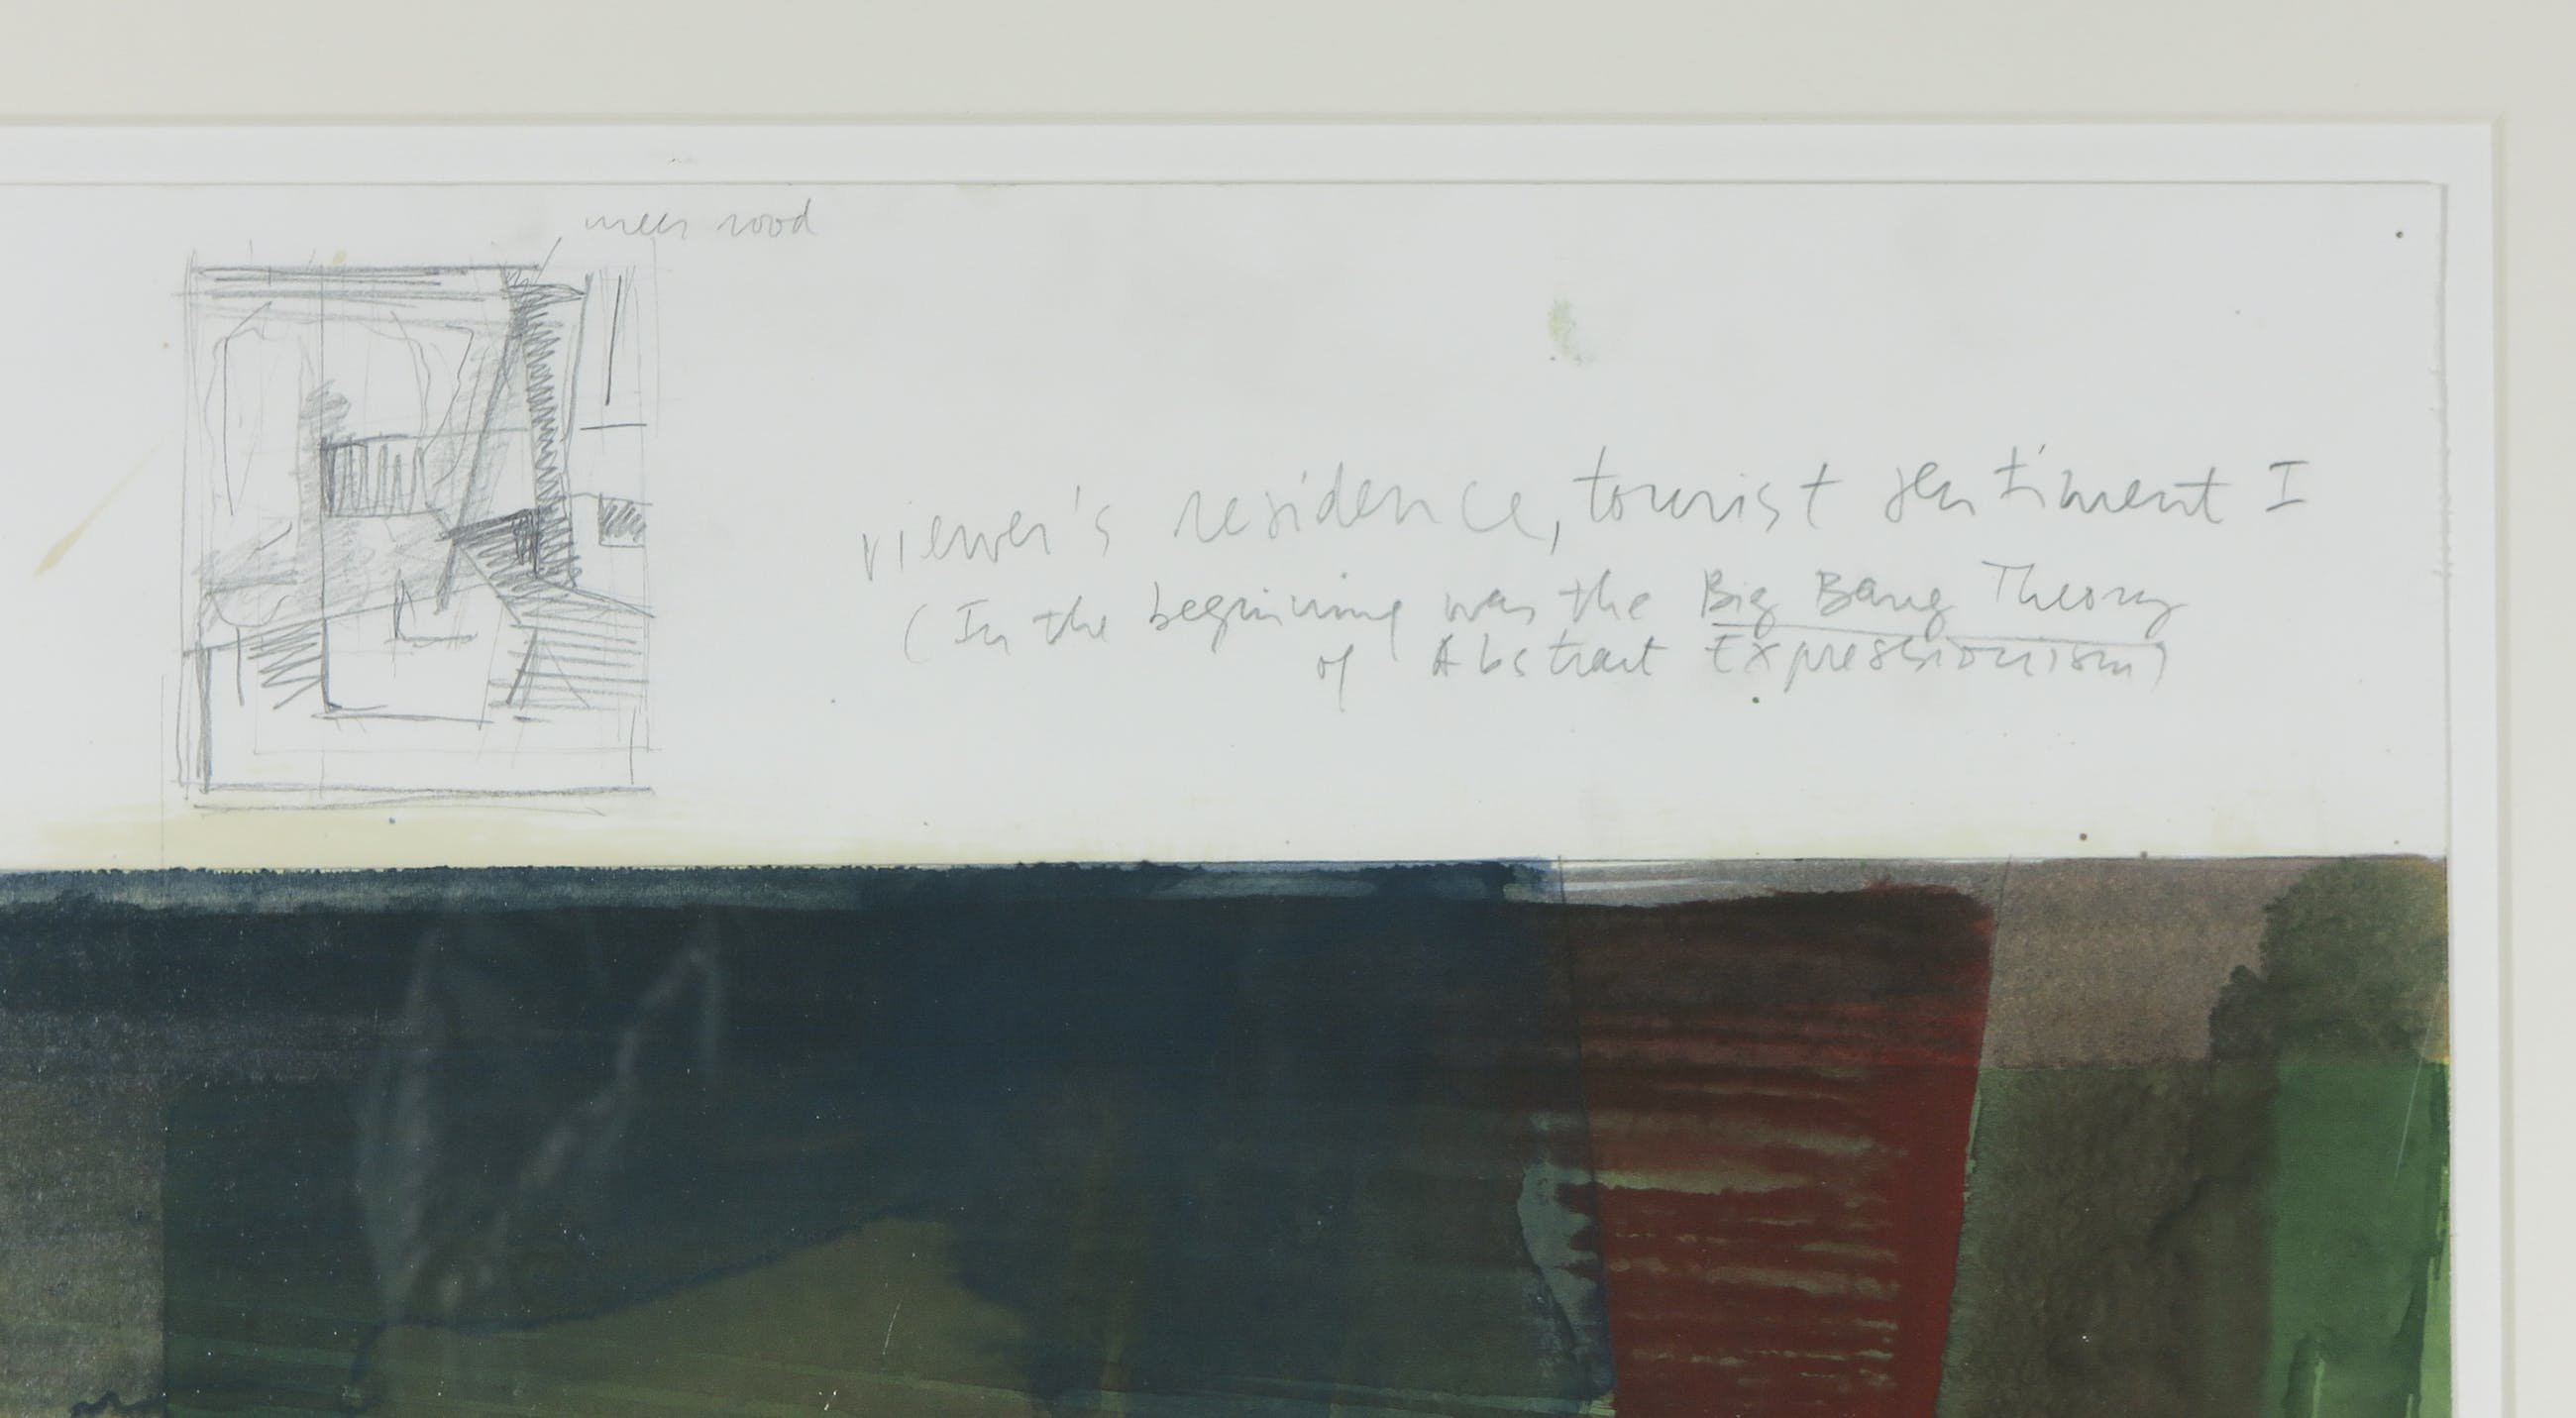 meer rood
viewer's residence, tourist sentiment I
(In the beginning was the Big Bang Theory
of Abstract Expressionism)